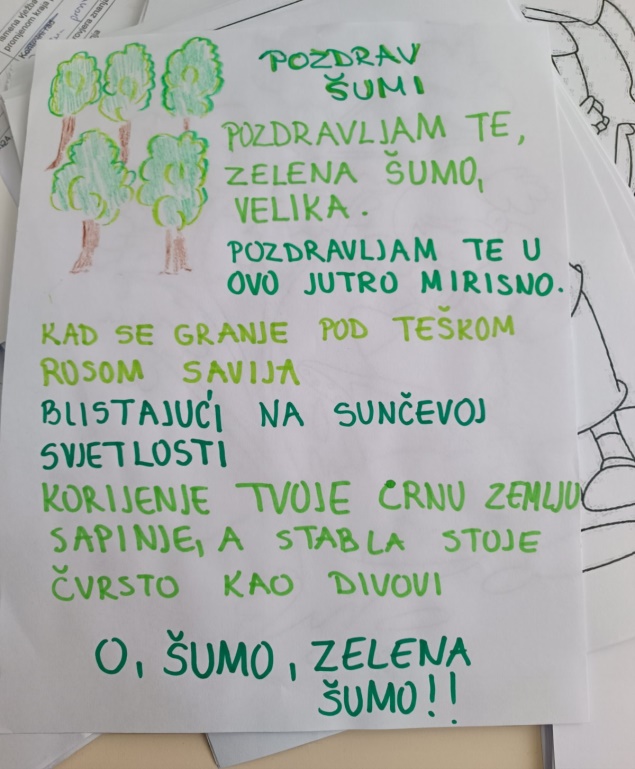 POZDRAV
ŠUMI
POZDRAVLJAM TE,
ZELENA ŠUMO,
VELIKA.
POZDRAVLJAM TE U
OVO JUTRO MIRISNO.
KAD SE GRANJE POD TEŠKOM
ROSOM SAVIJA
BLISTAJUĆI NA SUNČEVOJ
SVJETLOSTI
KORIJENJE TVOJE CRNU ZEMLJU
SAPINJE, A STABLA STOJE
ČVRSTO KAO DIVOVI
O, ŠUMO, ZELENA
ŠUMO!!